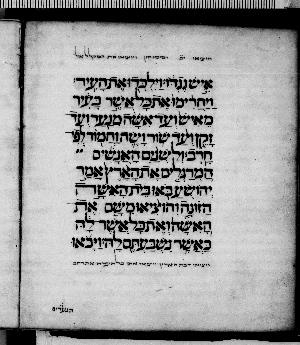 איש נגדו וילכדו את העיר
ויחרימו את כל אשר בעיר
מאיש ועד אשה מנער ועד
זקן ועד שור ושה וחמור לפי
חרב ולשנים האנשים
המרגלים את הארץ אמר
יהושע באו בית האשה
הזונה והוציאו משם את
האשה ואת כל אשר לה
כאשר נשבעתם לה ויבאו
הנערים